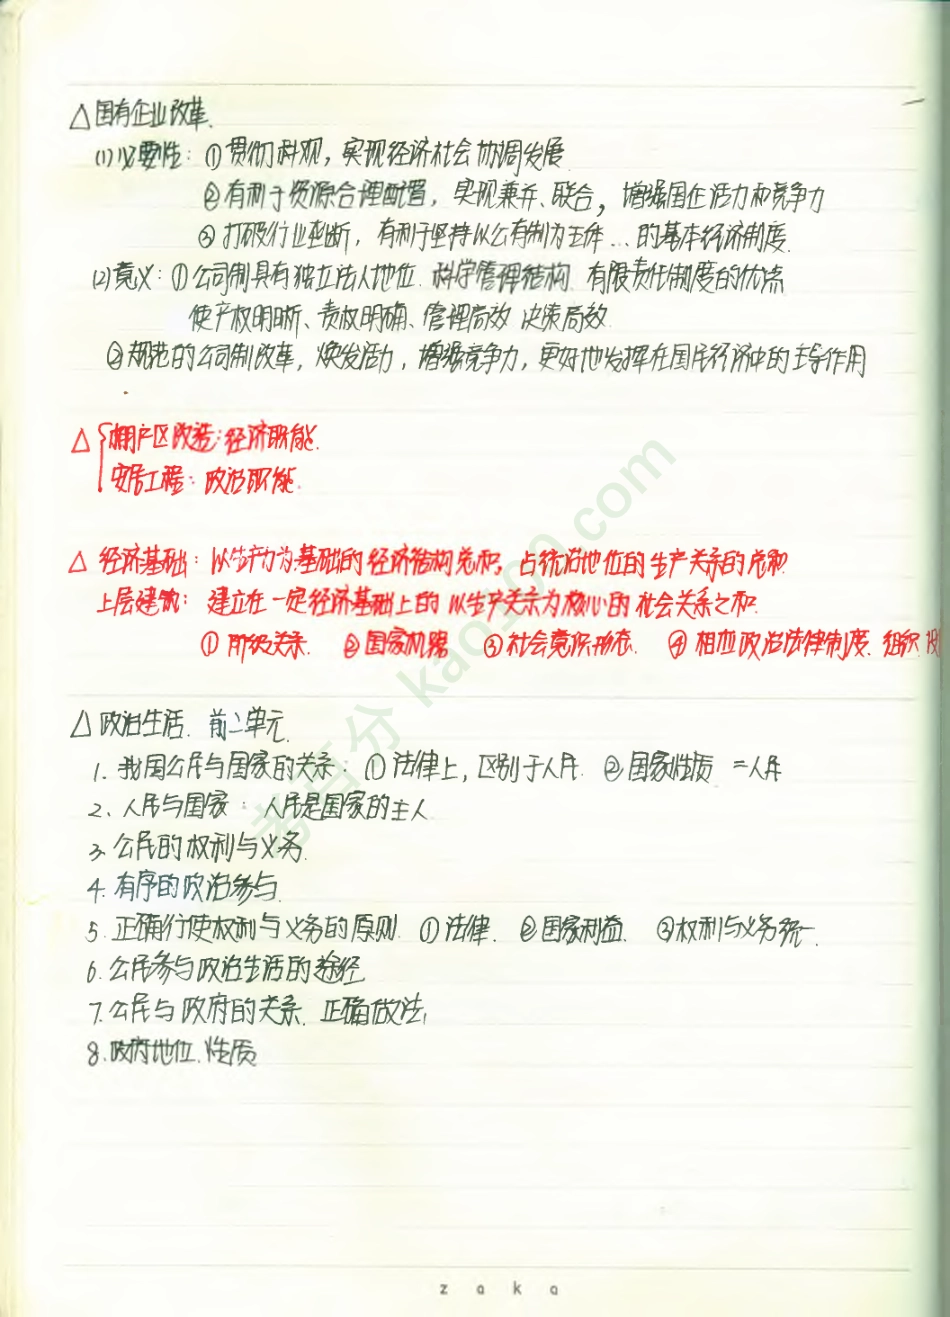 △国有企业改革.
(1)必要性：①贯彻科观，实现经济社会协调发展
②有利于资源合理配置，实现兼并、联合，增强国企活力和竞争力
③打破行业垄断，有利于坚持以公有制为主体…的基本经济制度.
(2)意义：①公司制具有独立法人地位. 科学管理结构. 有限责任制度的优点
使产权明晰、责权明确、管理高效 决策高效.
②规范的公司制改革，焕发活力，增强竞争力，更好地发挥在国民经济中的主导作用
△棚户区改造：经济职能.
安居工程：政治职能.
△ 经济基础：以生产力为基础的经济结构总和，占统治地位的生产关系的总和.
上层建筑：建立在一定经济基础上的 以生产关系为核心的社会关系之和.
①阶级关系. ②国家机器 ③社会意识形态. ④相应政治法律制度. 组织.设
△政治生活. 前二单元.
1. 我国公民与国家的关系：①法律上，区别于人民. ②国家性质 =人民
2、人民与国家：人民是国家的主人.
3. 公民的权利与义务.
4. 有序的政治参与.
5. 正确行使权利与义务的原则. ①法律. ②国家利益. ③权利与义务统一.
6. 公民参与政治生活的途径.
7. 公民与政府的关系. 正确做法,
8. 政府地位. 性质
考百分 kao100.com
zaka